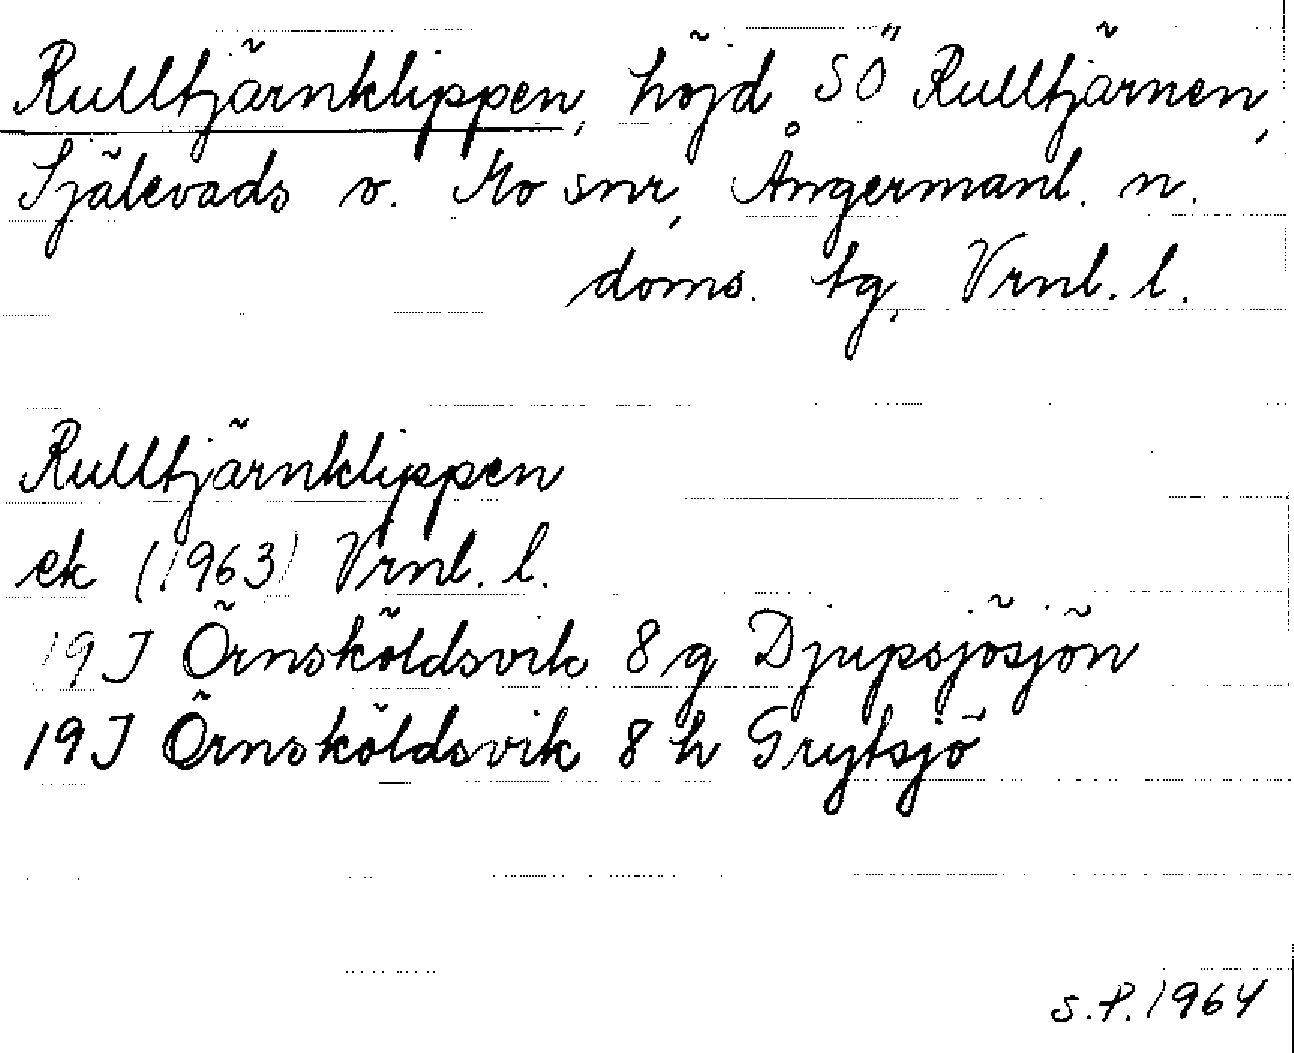 Rulltjärnklippen, höjd SÖ Rulltjärnen,
Själevads o. Mo snr, Ångermanl. n.
doms. tg, Vrnl. l.
Rulltjärnklippen
ek (1963) Vrnl. l.
19J Örnsköldsvik 8 g Djupsjösjön
19J Örnsköldsvik 8 h Grytsjö
S.P. 1964